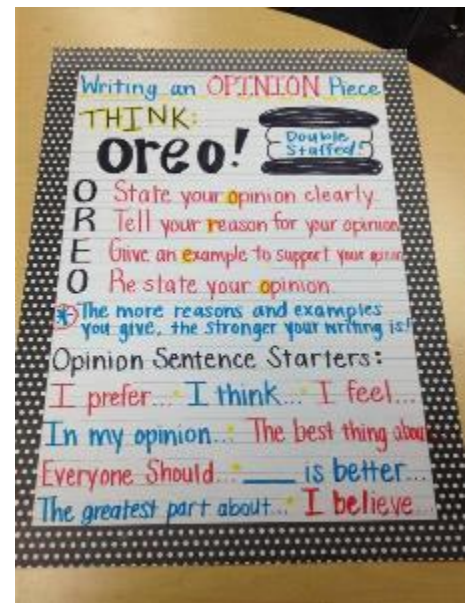 Writing an OPINION Piece
THINK:
oreo!
Double
Stuffed!
O State your opinion clearly.
R Tell your reason for your opinion
E Give an example to support your opinion
O Restate your opinion.
The more reasons and examples
you give, the stronger your writing is!
Opinion Sentence Starters:
I prefer... I think... I feel...
In my opinion... The best thing about
Everyone Should... ____ is better...
The greatest part about... I believe...